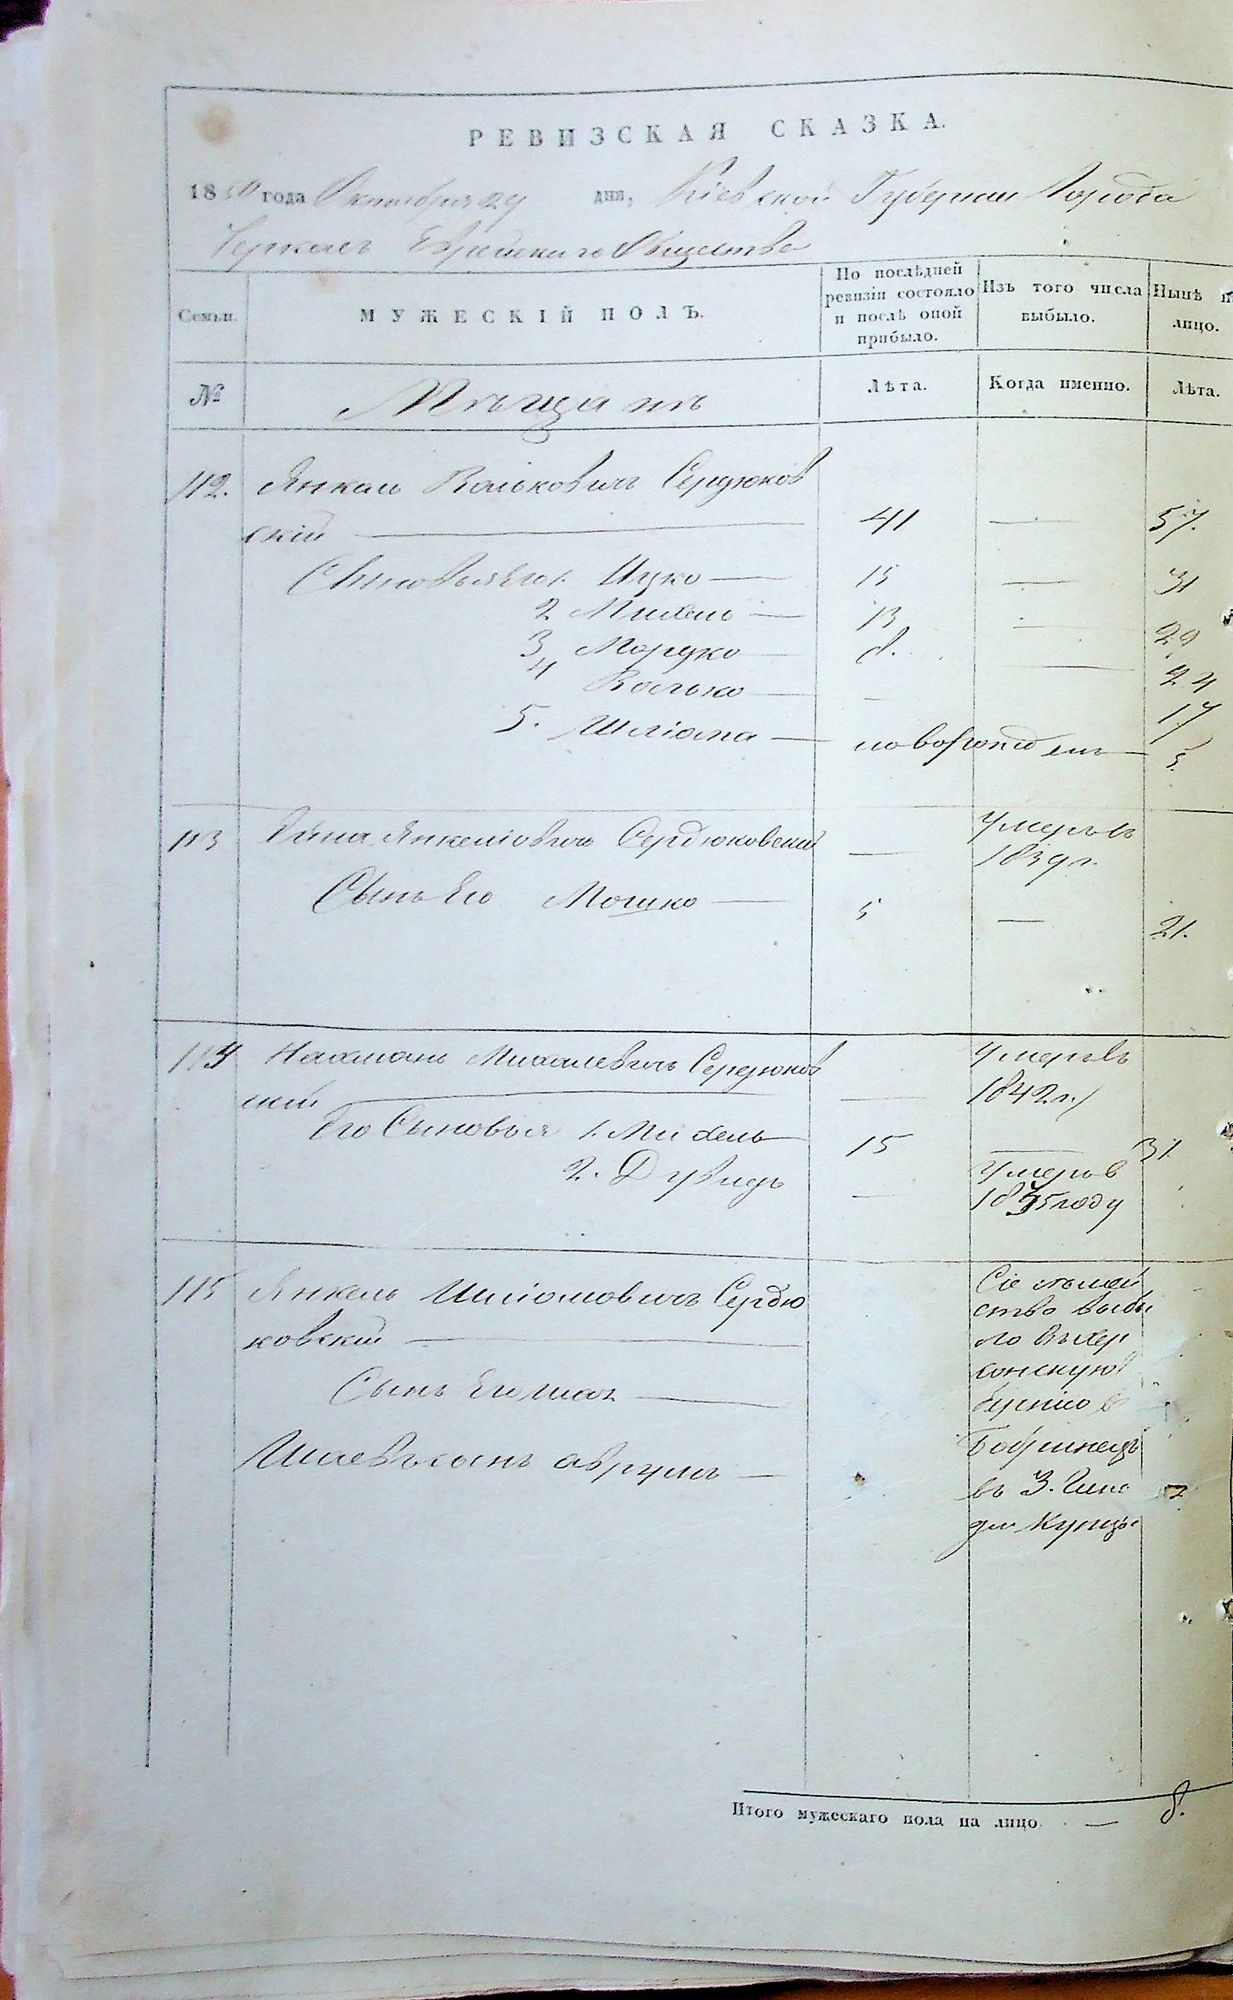 РЕВИЗСКАЯ СКАЗКА.
1850 года Октября 29 дня, Кіевской Губерніи Города
Черкасъ Еврейскаго Общества
Семьи.
МУЖЕСКІЙ ПОЛЪ.
По послѣдней ревизіи состояло и послѣ оной прибыло.
Изъ того числа выбыло.
Нынѣ н лицо.
№
Мѣщане
Лѣта.
Когда именно.
Лѣта.
112. Янкель Вольковичъ Сердюков
скій — 41 — 57.
Сыновья его 1. Ицко — 15 — 31
2 Михель — 13 — 29
3 Мордко — 8. — 24
4 Волько — — 17
5. Шліома — новорожденъ — 5.
113 Янкеліовичъ Сердюковскій — Умеръ въ
1839 г.
Сынъ Его Мошко — 5 — 21.
114 Нахманъ Михелевичъ Сердюков
скій — — Умеръ въ
1842 г.
Его Сыновья 1. Михель 15 — 31
2. Дувидъ — Умеръ в
1845 году
115 Янкель Шліомовичъ Сердю
ковскій —
Сынъ Его —
Шаевъ сынъ Аврумъ —
Сіе семей
ство выбы
ло въ Хер
сонскую
бернію в
Бобринецъ
въ 3. Гил
діи Купцы
Итого мужескаго пола на лицо. — 8.